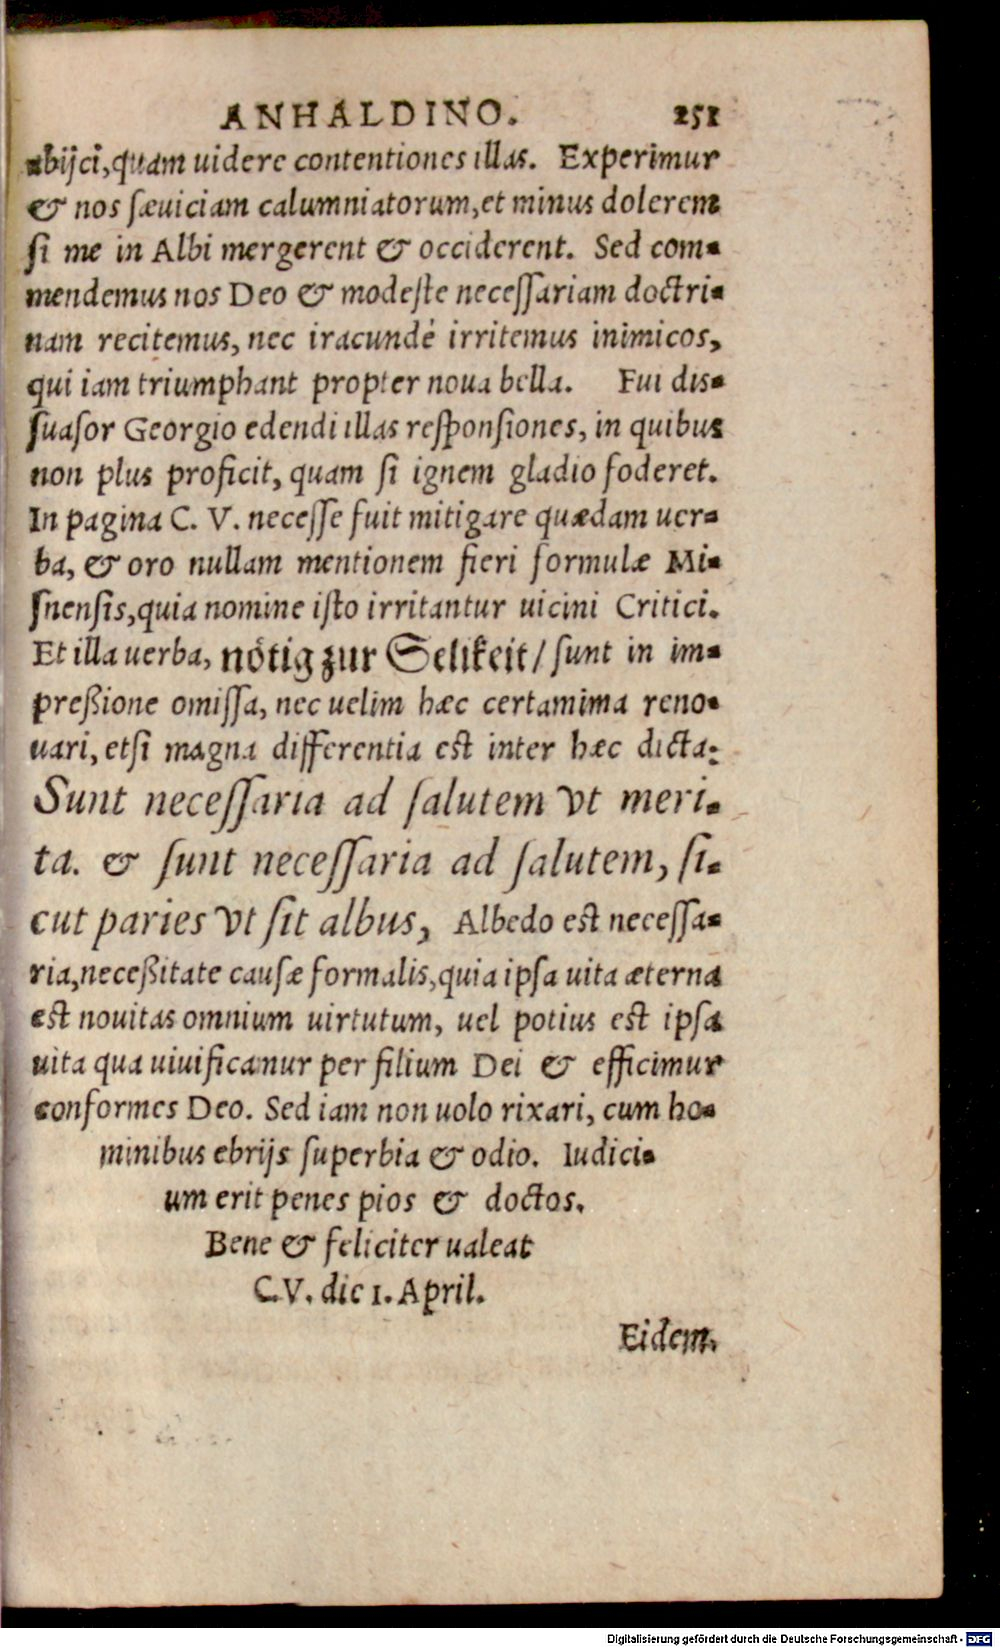 ANHALDINO. 251
abijci, quam uidere contentiones illas. Experimur
& nos sæuiciam calumniatorum, et minus dolerem
si me in Albi mergerent & occiderent. Sed com-
mendemus nos Deo & modeste necessariam doctri-
nam recitemus, nec iracundè irritemus inimicos,
qui iam triumphant propter noua bella. Fui dis-
suasor Georgio edendi illas responsiones, in quibus
non plus proficit, quam si ignem gladio foderet.
In pagina C. V. necesse fuit mitigare quædam uer-
ba, & oro nullam mentionem fieri formulæ Mi-
snensis, quia nomine isto irritantur uicini Critici.
Et illa uerba, nötig zur Selikeit / sunt in im-
preßione omissa, nec uelim hæc certamima reno-
uari, etsi magna differentia est inter hæc dicta:
Sunt necessaria ad salutem vt meri-
ta. & sunt necessaria ad salutem, si-
cut paries vt sit albus, Albedo est necessa-
ria, neceßitate causæ formalis, quia ipsa uita æterna
est nouitas omnium uirtutum, uel potius est ipsa
uita qua uiuificamur per filium Dei & efficimur
conformes Deo. Sed iam non uolo rixari, cum ho-
minibus ebrijs superbia & odio. Iudici-
um erit penes pios & doctos.
Bene & feliciter ualeat
C.V. die 1. April.
Eidem.
Digitalisierung gefördert durch die Deutsche Forschungsgemeinschaft - DFG